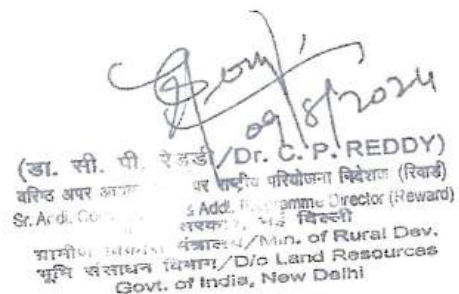 09/8/2024
(डा. सी. पी. रेड्डी/Dr. C. P. REDDY)
वरिष्ठ अपर राष्ट्रीय परियोजना निदेशक (रिवार्ड)
Sr. Addl. & Addl. Programme Director (Reward)
नई दिल्ली
ग्रामीण विकास मंत्रालय/Min. of Rural Dev.
भूमि संसाधन विभाग/D/o Land Resources
Govt. of India, New Delhi